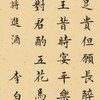 足貴但願長
王昔時宴平樂
對君酌五花馬
將進酒 李白